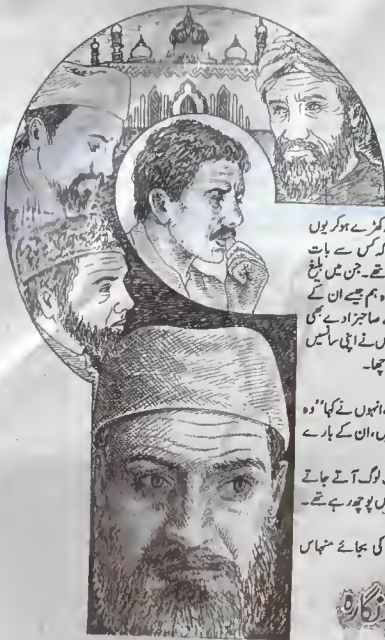 کھڑے ہوکر یوں
کہ کس سے بات
تھے۔ جن میں بلخ
و ہم جیسے ان کے
صاحبزادے بھی
ں نے اپنی سانسیں
چھا۔
انہوں نے کہا ”وہ
ں، ان کے بارے
لوگ آتے جاتے
ں پوچھ رہے تھے۔
کی بجائے منہاس